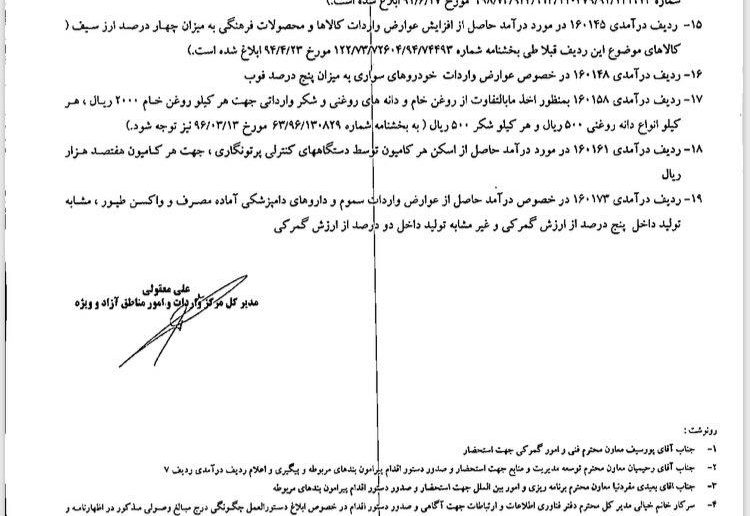 ۱۵- ردیف درآمدی ۱۶۰۱۴۵ در مورد درآمد حاصل از افزایش عوارض واردات کالاها و محصولات فرهنگی به میزان چهار درصد ارز سیف (
کالاهای موضوع این ردیف قبلا طی بخشنامه شماره ۱۲۲/۷۳/۷۲۶۰۴/۹۴/۷۴۴۹۳ مورخ ۹۴/۴/۲۳ ابلاغ شده است.)
۱۶- ردیف درآمدی ۱۶۰۱۴۸ در خصوص عوارض واردات خودروهای سواری به میزان پنج درصد فوب
۱۷- ردیف درآمدی ۱۶۰۱۵۸ بمنظور اخذ مابالتفاوت از روغن خام و دانه های روغنی و شکر وارداتی جهت هر کیلو روغن خام ۲۰۰۰ ریال ، هر
کیلو انواع دانه روغنی ۵۰۰ ریال و هر کیلو شکر ۵۰۰ ریال ( به بخشنامه شماره ۶۳/۹۶/۱۳۰۸۲۹ مورخ ۹۶/۰۳/۱۳ نیز توجه شود.)
۱۸- ردیف درآمدی ۱۶۰۱۶۱ در مورد درآمد حاصل از اسکن هر کامیون توسط دستگاههای کنترلی پرتونگاری ، جهت هر کامیون هفتصد هزار
ریال
۱۹- ردیف درآمدی ۱۶۰۱۷۳ در خصوص درآمد حاصل از عوارض واردات سموم و داروهای دامپزشکی آماده مصرف و واکسن طیور ، مشابه
تولید داخل پنج درصد از ارزش گمرکی و غیر مشابه تولید داخل دو درصد از ارزش گمرکی
علی معقولی
مدیر کل مرکز واردات و امور مناطق آزاد و ویژه
رونوشت :
۱- جناب آقای پورسیف معاون محترم فنی و امور گمرکی جهت استحضار
۲- جناب آقای رحیمیان معاون محترم توسعه مدیریت و منابع جهت استحضار و صدور دستور اقدام پیرامون بندهای مربوطه و پیگیری و اعلام ردیف درآمدی ردیف ۷
۳- جناب اقای بعیدی مفردنیا معاون محترم برنامه ریزی و امور بین الملل جهت استحضار و صدور دستور اقدام پیرامون بندهای مربوطه
۴- سرکار خانم خیالی مدیر کل محترم دفتر فناوری اطلاعات و ارتباطات جهت آگاهی و صدور دستور اقدام در خصوص ابلاغ دستورالعمل چگونگی درج مبالغ وصولی مذکور در اظهارنامه و